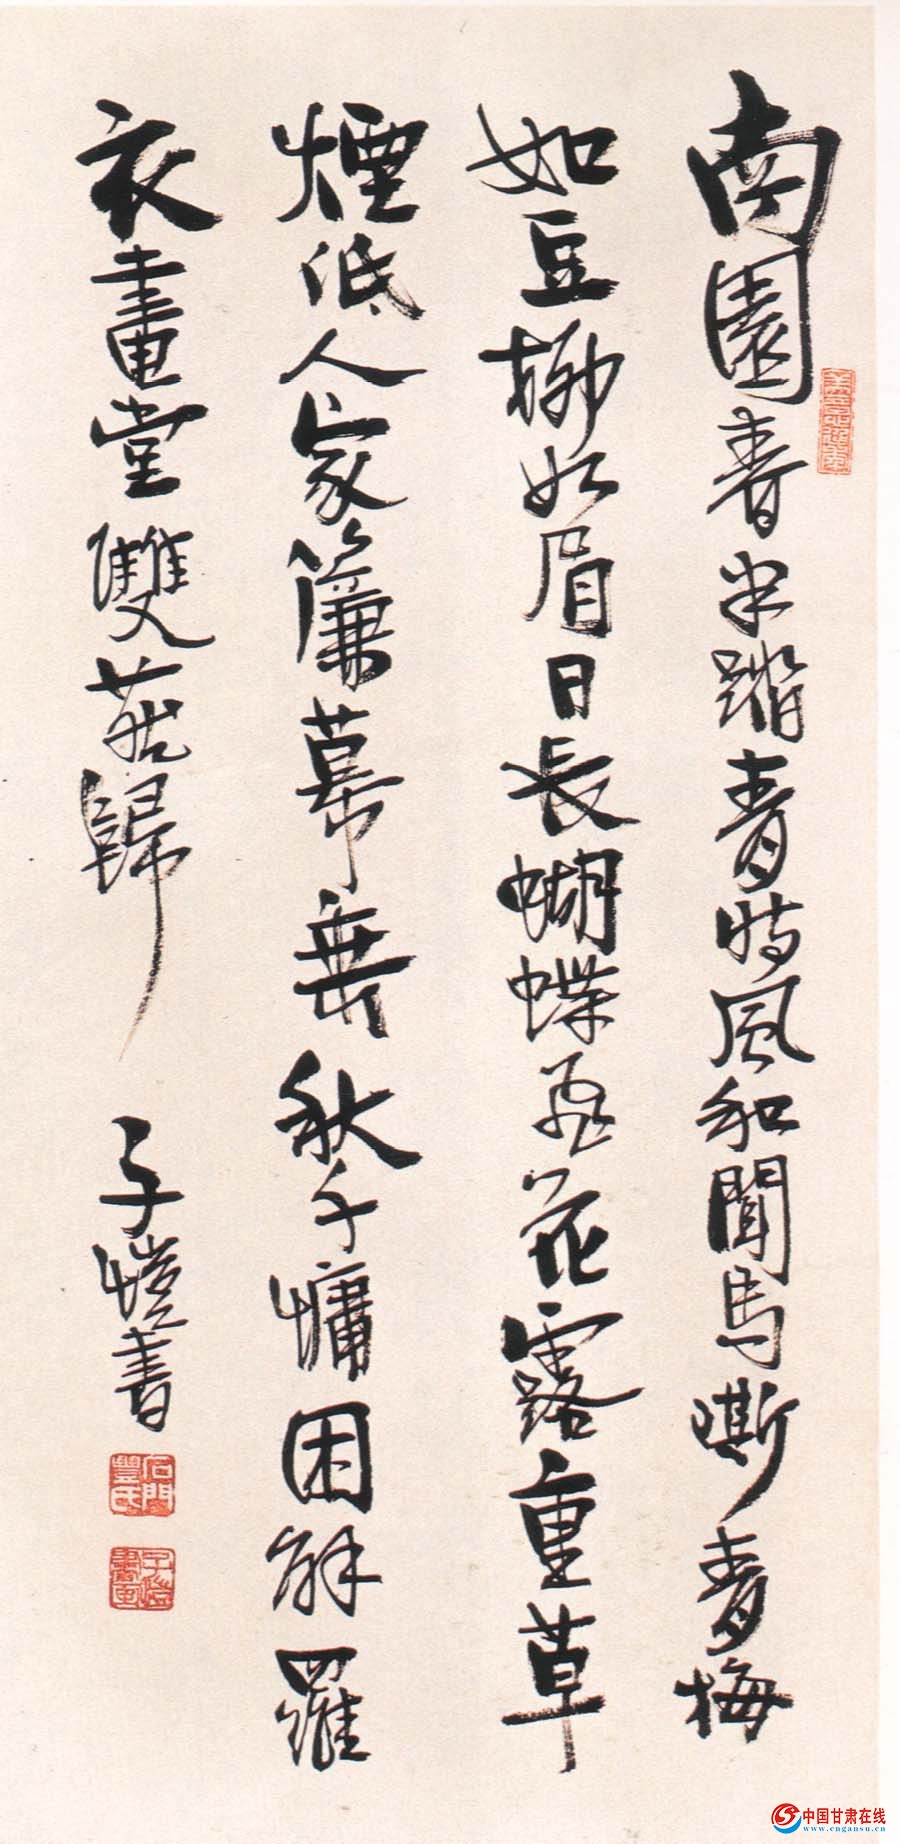 南園春半踏青時風和聞馬嘶青梅
如豆柳如眉日長蝴蝶飛花露重草
煙低人家簾幕垂秋千慵困解羅
衣畫堂雙燕歸
子愷書
石門豐氏
子愷書畫
中国甘肃在线
www.cngansu.cn